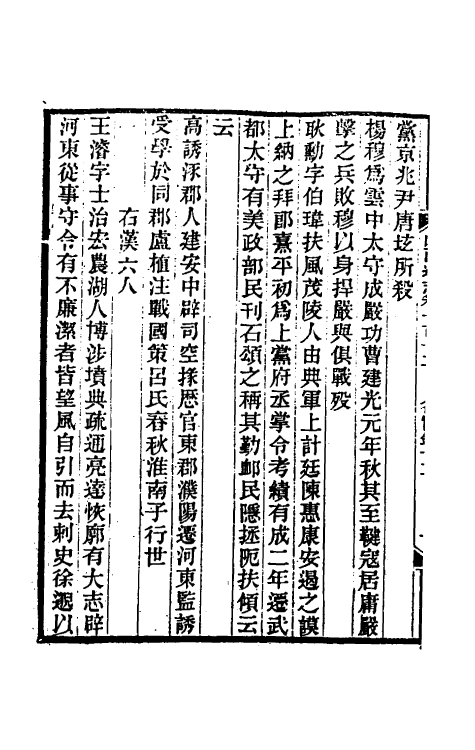 黨京兆尹唐玹所殺
楊穆爲雲中太守成嚴功曹建光元年秋其至鞬寇居庸嚴
擊之兵敗穆以身捍嚴與俱戰歿
耿勳字伯瑋扶風茂陵人由典軍上計廷陳惠康安遏之謨
上納之拜郎熹平初爲上黨府丞掌令考績有成二年遷武
都太守有美政部民刊石頌之稱其勤䘏民隱拯阨扶傾云
云
高誘涿郡人建安中辟司空掾歷官東郡濮陽遷河東監誘
受學於同郡盧植注戰國策呂氏春秋淮南子行世
右漢六人
王濬字士治宏農湖人博涉墳典疏通亮達恢廓有大志辟
河東從事守令有不廉潔者皆望風自引而去刺史徐邈以